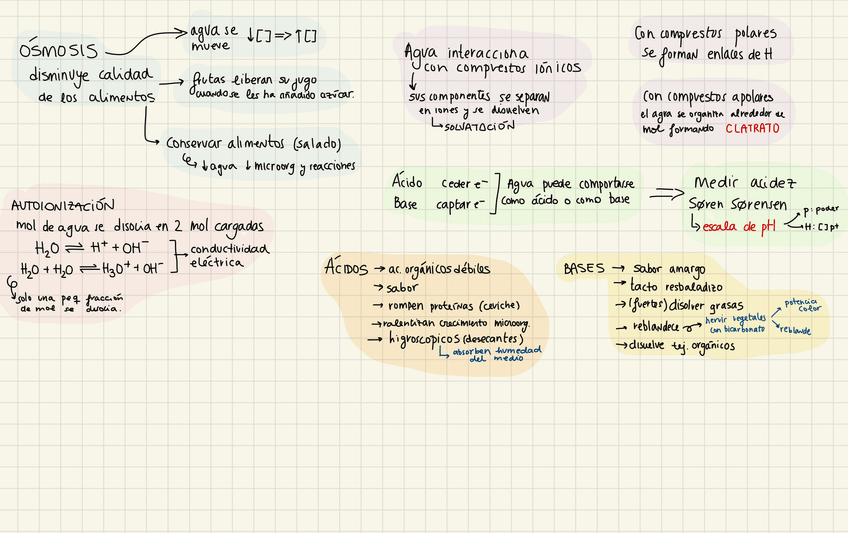 ÓSMOSIS
disminuye calidad
de los alimentos
agua se
mueve ↓[] => ↑[]
frutas liberan su jugo
cuando se les ha añadido azúcar.
Conservar alimentos (salado)
↓agua ↓microorg y reacciones
Agua interacciona
con compuestos iónicos
sus componentes se separan
en iones y se disuelven
SOLVATACIÓN
Con compuestos polares
se forman enlaces de H
Con compuestos apolares
el agua se organiza alrededor de
mol formando CLATRATO
Ácido ceder e-
Base captar e-
Agua puede comportarse
como ácido o como base
Medir acidez
Søren Sørensen
escala de pH
p: poder
H: [] pt
AUTOIONIZACIÓN
mol de agua se disocia en 2 mol cargadas
H₂O ⇌ H⁺ + OH⁻
H₂O + H₂O ⇌ H₃O⁺ + OH⁻
conductividad
eléctrica
solo una peq fracción
de mol se disocia.
ÁCIDOS → ac. orgánicos débiles
→ sabor
→ rompen proteínas (ceviche)
→ ralentitan crecimiento microorg.
→ higroscópicos (desecantes)
absorben humedad
del medio
BASES → sabor amargo
→ tacto resbaladizo
→ (fuertes) disolver grasas
→ reblandece → hervir vegetales
con bicarbonato
potencia
color
reblande
→ disuelve tej. orgánicos